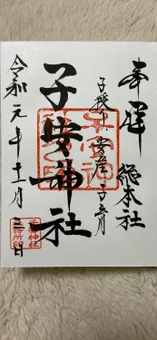 奉拝 総本社
子授け 安産 子育
子安神社
令和元年十一月三日